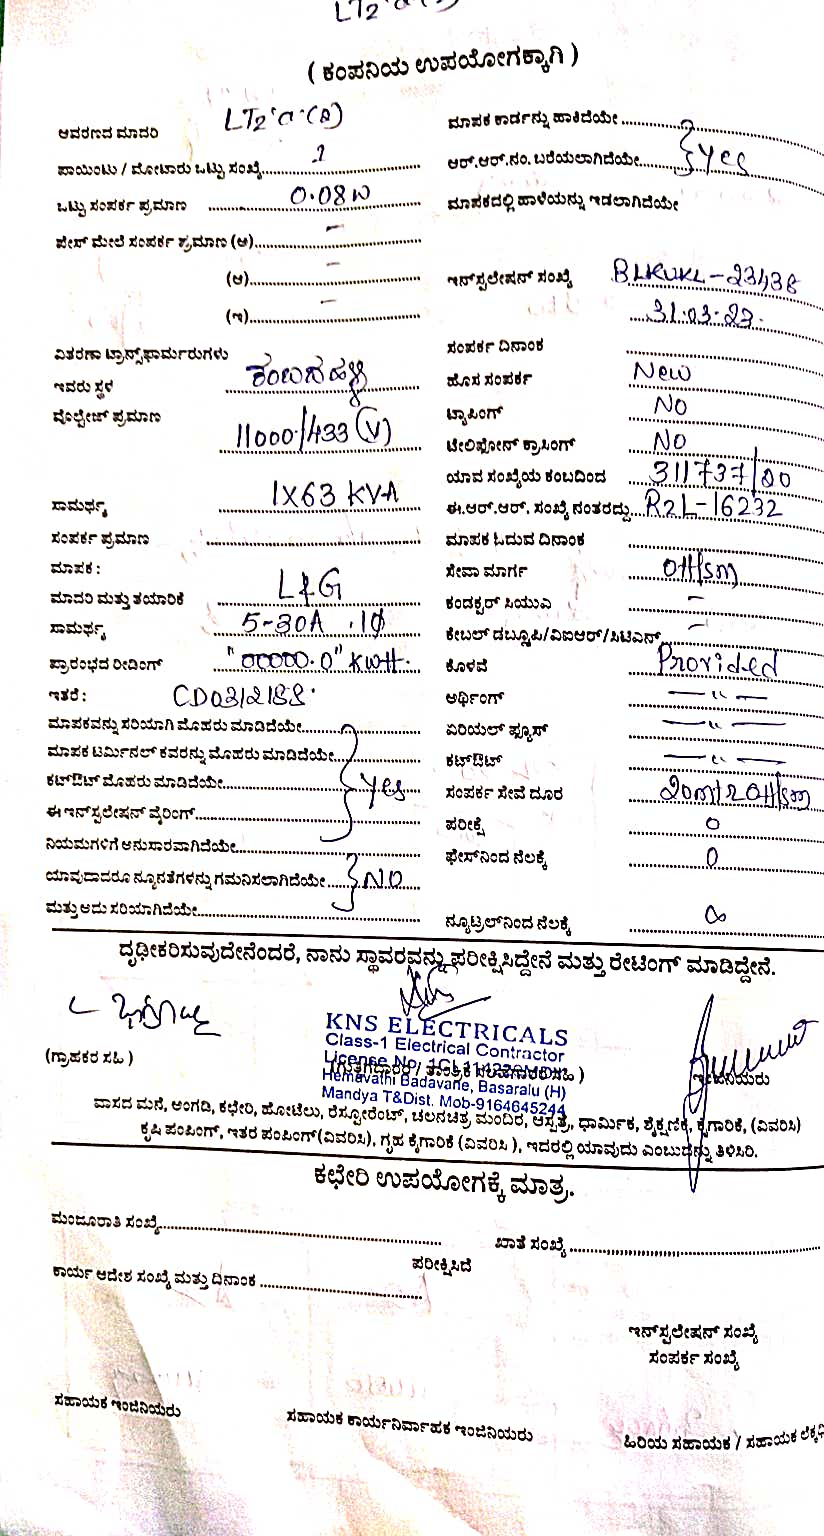 LT2 a (
( ಕಂಪನಿಯ ಉಪಯೋಗಕ್ಕಾಗಿ )
ಆವರಣದ ಮಾದರಿ LT2 a (A)
ಮಾಪಕ ಕಾರ್ಡನ್ನು ಹಾಕಿದೆಯೇ
ಪಾಯಿಂಟು / ಮೋಟಾರು ಒಟ್ಟು ಸಂಖ್ಯೆ 2
ಆರ್.ಆರ್.ನಂ. ಬರೆಯಲಾಗಿದೆಯೇ yes
ಒಟ್ಟು ಸಂಪರ್ಕ ಪ್ರಮಾಣ 0.08 W
ಮಾಪಕದಲ್ಲಿ ಹಾಳೆಯನ್ನು ಇಡಲಾಗಿದೆಯೇ
ಪೇಸ್ ಮೇಲೆ ಸಂಪರ್ಕ ಪ್ರಮಾಣ (ಅ) –
(ಆ) –
ಇನ್‌ಸ್ಟಲೇಷನ್ ಸಂಖ್ಯೆ BLKUKL-23438
(ಇ) –
31.03.23.
ವಿತರಣಾ ಟ್ರಾನ್ಸ್‌ಫಾರ್ಮರುಗಳು
ಸಂಪರ್ಕ ದಿನಾಂಕ
ಇವರು ಸ್ಥಳ ಕಂಬದಹಳ್ಳಿ
ಹೊಸ ಸಂಪರ್ಕ New
ವೊಲ್ಟೇಜ್ ಪ್ರಮಾಣ 11000/433 (V)
ಟ್ಯಾಪಿಂಗ್ NO
ಟೆಲಿಫೋನ್ ಕ್ರಾಸಿಂಗ್ NO
ಯಾವ ಸಂಖ್ಯೆಯ ಕಂಬದಿಂದ 311737/00
ಸಾಮರ್ಥ್ಯ 1X63 KVA
ಈ.ಆರ್.ಆರ್. ಸಂಖ್ಯೆ ನಂತರದ್ದು R2L-16232
ಸಂಪರ್ಕ ಪ್ರಮಾಣ
ಮಾಪಕ ಓದುವ ದಿನಾಂಕ
ಮಾಪಕ :
ಸೇವಾ ಮಾರ್ಗ OH/sm
ಮಾದರಿ ಮತ್ತು ತಯಾರಿಕೆ L&G
ಕಂಡಕ್ಟರ್ ಸಿಯುಎ –
ಸಾಮರ್ಥ್ಯ 5-30A 1Φ
ಕೇಬಲ್ ಡಬ್ಲ್ಯೂಪಿ/ವಿಐಆರ್/ಸಿಟಿಎನ್ –
ಪ್ರಾರಂಭದ ರೀಡಿಂಗ್ "00000.0" KWH.
ಕೊಳವೆ Provided
ಇತರೆ :
ಅರ್ಥಿಂಗ್ — " —
ಮಾಪಕವನ್ನು ಸರಿಯಾಗಿ ಮೊಹರು ಮಾಡಿದೆಯೇ
ಏರಿಯಲ್ ಫ್ಯೂಸ್ — " —
ಮಾಪಕ ಟರ್ಮಿನಲ್ ಕವರನ್ನು ಮೊಹರು ಮಾಡಿದೆಯೇ
ಕಟ್‌ಔಟ್ — " —
ಕಟ್‌ಔಟ್ ಮೊಹರು ಮಾಡಿದೆಯೇ yes
ಸಂಪರ್ಕ ಸೇವೆ ದೂರ 20m/20H/sm
ಈ ಇನ್‌ಸ್ಟಲೇಷನ್ ವೈರಿಂಗ್
ಪರೀಕ್ಷೆ 0
ನಿಯಮಗಳಿಗೆ ಅನುಸಾರವಾಗಿದೆಯೇ
ಫೇಸ್‌ನಿಂದ ನೆಲಕ್ಕೆ 0
ಯಾವುದಾದರೂ ನ್ಯೂನತೆಗಳನ್ನು ಗಮನಿಸಲಾಗಿದೆಯೇ NO
ಮತ್ತು ಅದು ಸರಿಯಾಗಿದೆಯೇ
ನ್ಯೂಟ್ರಲ್‌ನಿಂದ ನೆಲಕ್ಕೆ ∞
ದೃಢೀಕರಿಸುವುದೇನೆಂದರೆ, ನಾನು ಸ್ಥಾವರವನ್ನು ಪರೀಕ್ಷಿಸಿದ್ದೇನೆ ಮತ್ತು ರೇಟಿಂಗ್ ಮಾಡಿದ್ದೇನೆ.
KNS ELECTRICALS
Class-1 Electrical Contractor
(ಗ್ರಾಹಕರ ಸಹಿ )
License No.
Hemavathi Badavane, Basaralu (H)
Mandya T&Dist. Mob-9164645244
ವಾಸದ ಮನೆ, ಅಂಗಡಿ, ಕಛೇರಿ, ಹೋಟೆಲು, ರೆಸ್ಟೋರೆಂಟ್, ಚಲನಚಿತ್ರ ಮಂದಿರ, ಆಸ್ಪತ್ರೆ, ಧಾರ್ಮಿಕ, ಶೈಕ್ಷಣಿಕ, ಕೈಗಾರಿಕೆ, (ವಿವರಿಸಿ)
ಕೃಷಿ ಪಂಪಿಂಗ್, ಇತರ ಪಂಪಿಂಗ್(ವಿವರಿಸಿ), ಗೃಹ ಕೈಗಾರಿಕೆ (ವಿವರಿಸಿ ), ಇದರಲ್ಲಿ ಯಾವುದು ಎಂಬುದನ್ನು ತಿಳಿಸಿರಿ.
ಕಛೇರಿ ಉಪಯೋಗಕ್ಕೆ ಮಾತ್ರ.
ಮಂಜೂರಾತಿ ಸಂಖ್ಯೆ
ಖಾತೆ ಸಂಖ್ಯೆ
ಪರೀಕ್ಷಿಸಿದೆ
ಕಾರ್ಯ ಆದೇಶ ಸಂಖ್ಯೆ ಮತ್ತು ದಿನಾಂಕ
ಇನ್‌ಸ್ಟಲೇಷನ್ ಸಂಖ್ಯೆ
ಸಂಪರ್ಕ ಸಂಖ್ಯೆ
ಸಹಾಯಕ ಇಂಜಿನಿಯರು
ಸಹಾಯಕ ಕಾರ್ಯನಿರ್ವಾಹಕ ಇಂಜಿನಿಯರು
ಹಿರಿಯ ಸಹಾಯಕ / ಸಹಾಯಕ